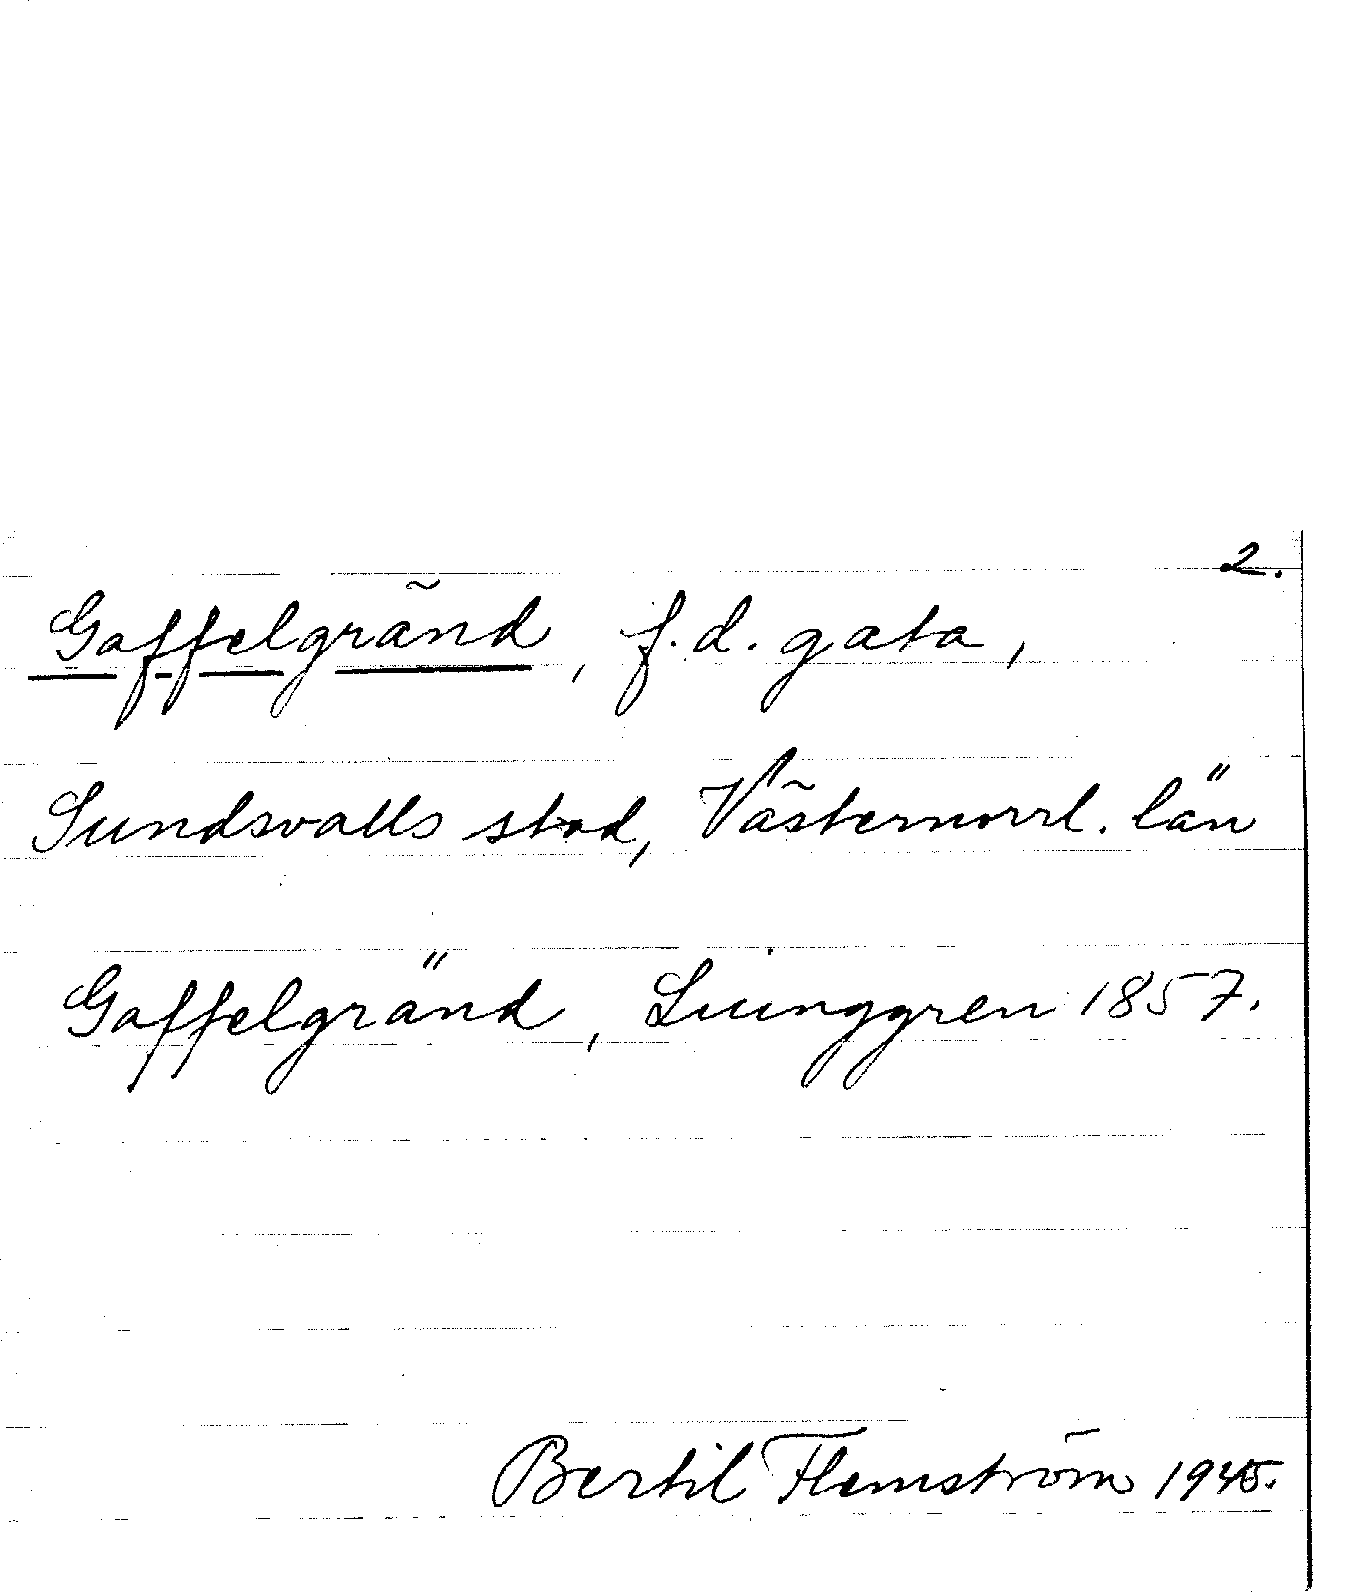 2.
Gaffelgränd, f.d. gata,
Sundsvalls stad, Västernorrl. län
Gaffelgränd, Liunggren 1857.
Bertil Flemström 1945.